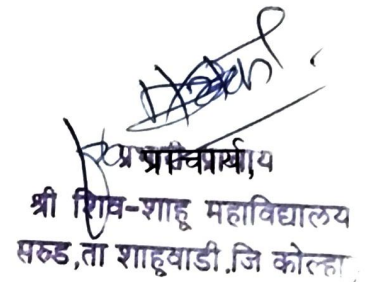 प्राचार्य,
श्री शिव-शाहू महाविद्यालय
सरुड,ता शाहूवाडी.जि कोल्हा